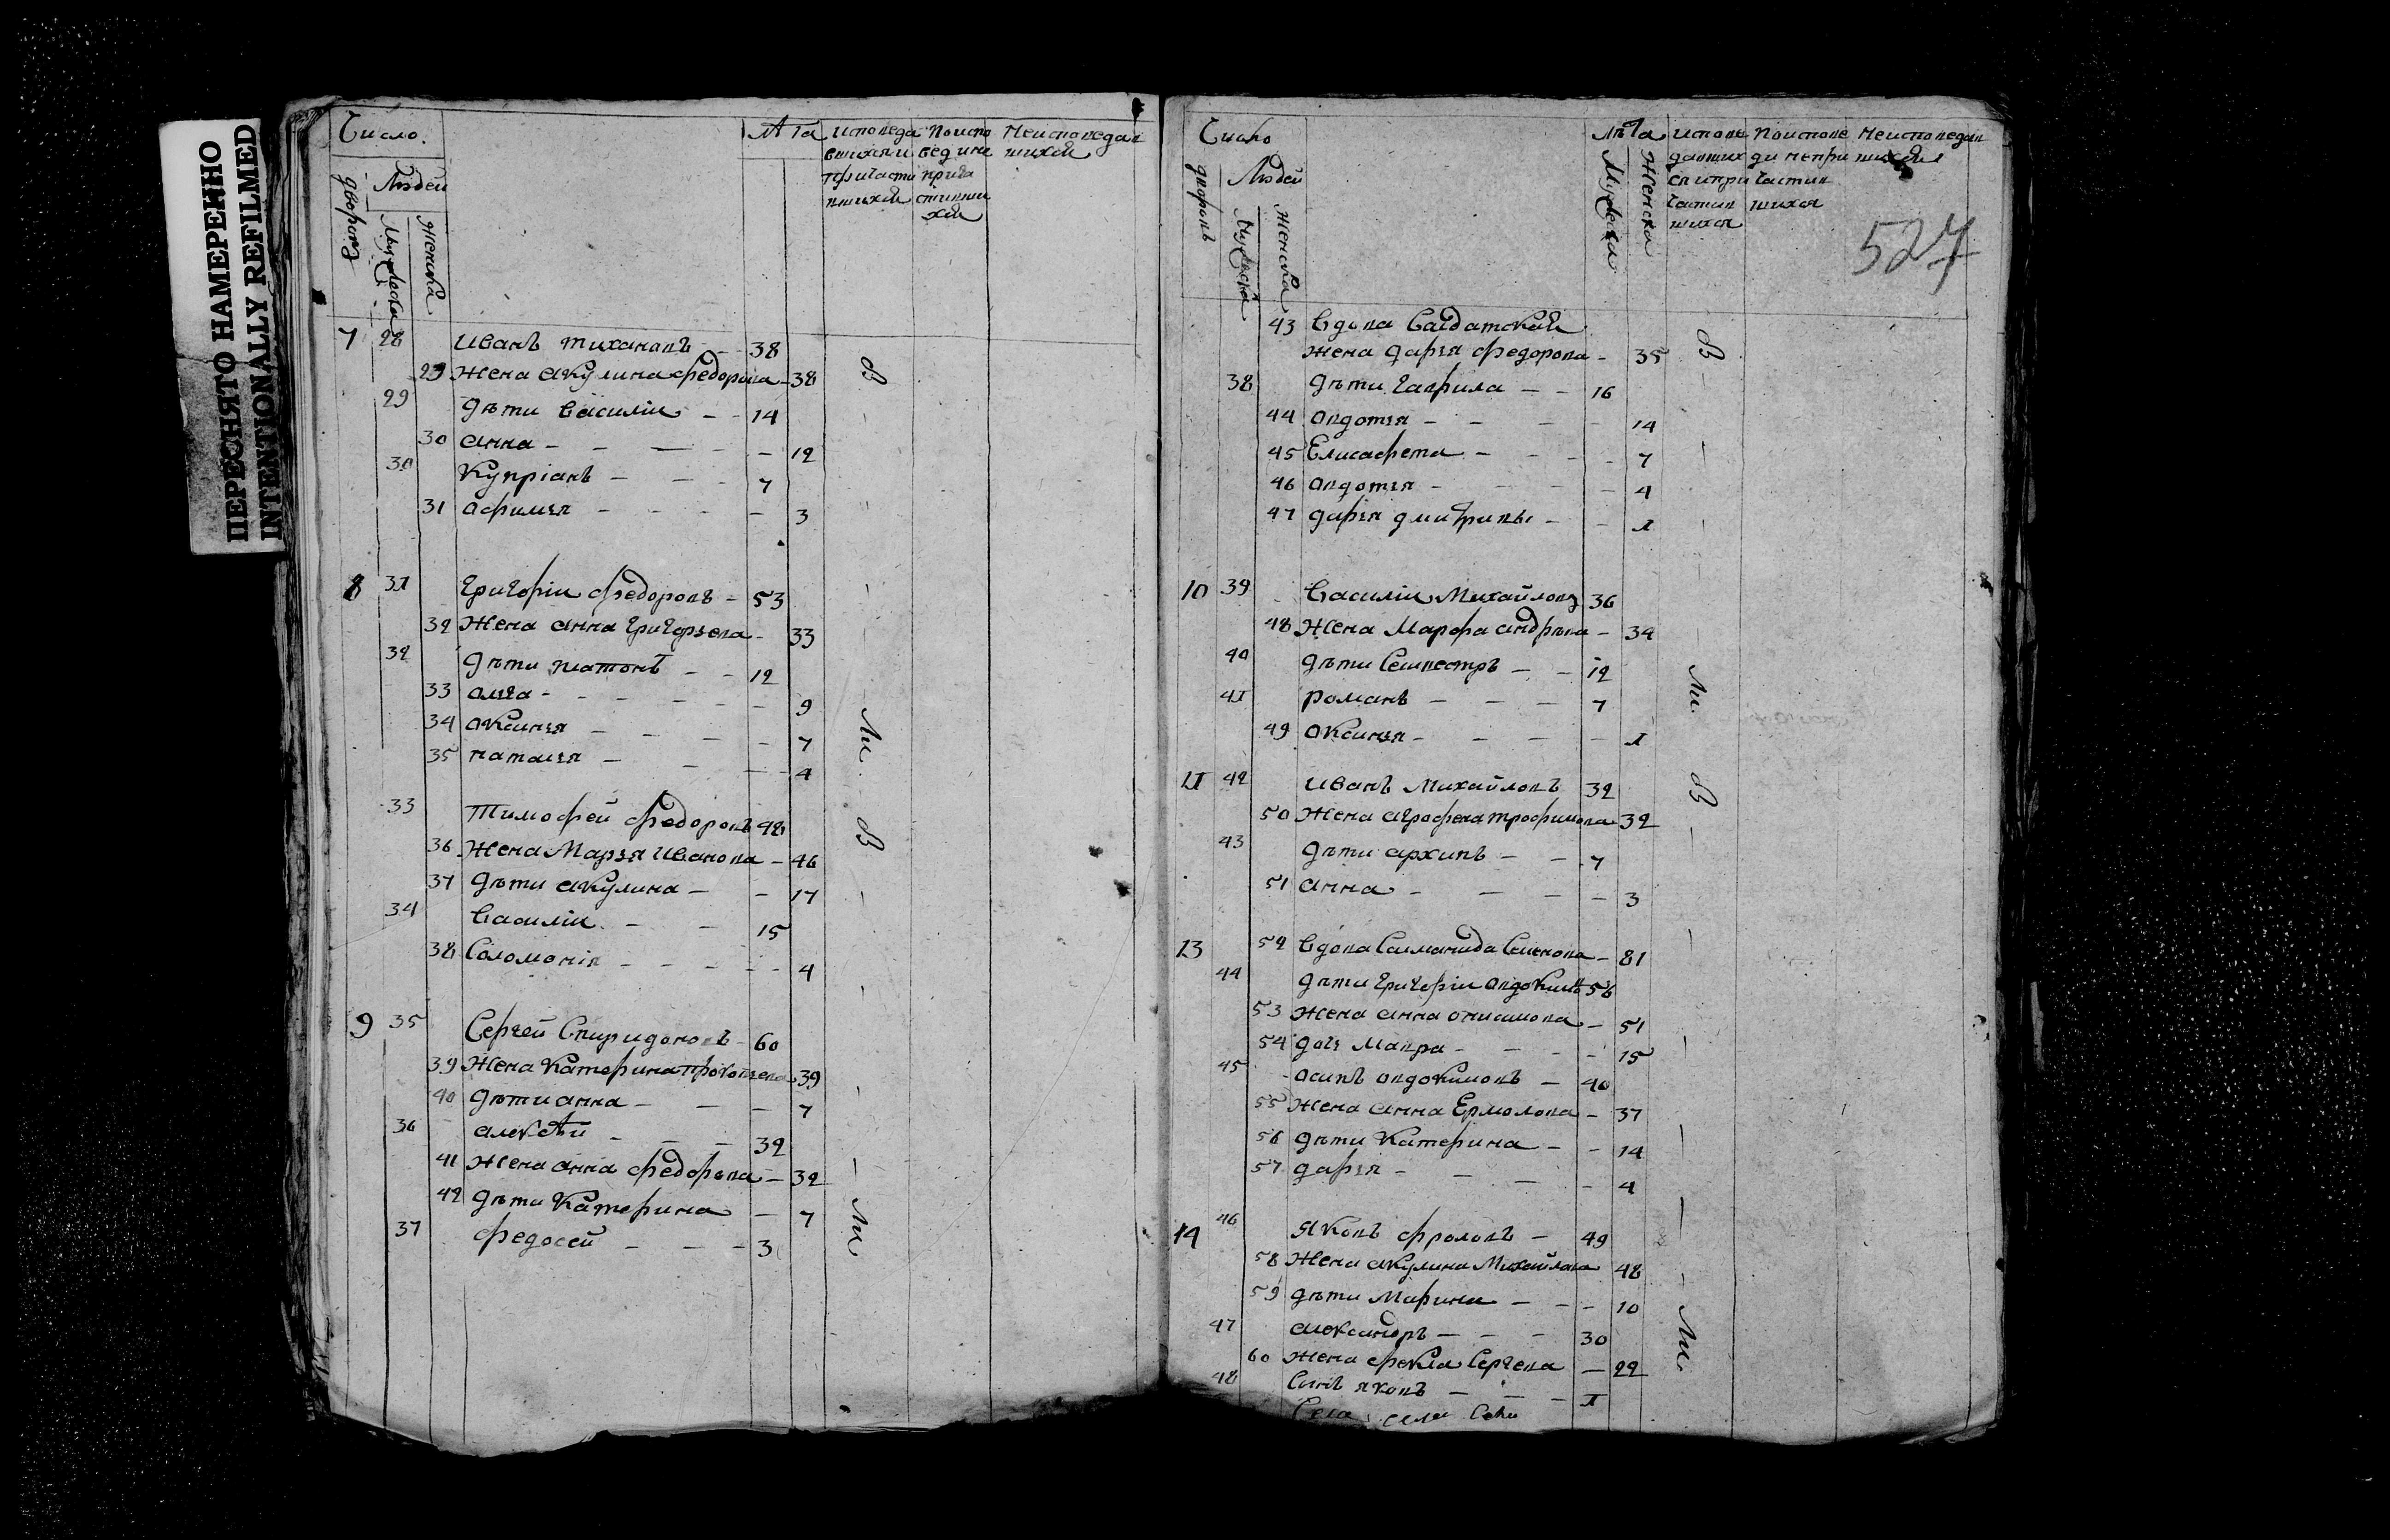 ПЕРЕСНЯТО НАМЕРЕННО
INTENTIONALLY REFILMED
Число.
Людей
дворовъ
Мужеска
Женска
Лѣта
исповеда вшихся и причасти вшихся
Неисповедав шихся
7 28 Иванъ Тихановъ - - 38
29 Жена Акулина Федорова - 38
29 Дѣти Василіи - - 14
30 Анна - - - - - 12
30 Купріанъ - - - 7
31 Афимья - - - - - 3
8 31 Григоріи Федоровъ - 53
32 Жена Анна Григорьева - 33
32 Дѣти Платонъ - - 12
33 Олга - - - - - - 9
34 Аксинья - - - - - 7
35 Наталья - - - - 4
33 Тимофей Федоровъ 48
36 Жена Марья Иванова - 46
37 Дѣти Акулина - - 17
34 Василіи - - 15
38 Соломонія - - - - - 4
9 35 Сергей Спиридоновъ - 60
39 Жена Катерина Прокопьева 39
40 Дѣти Анна - - - 7
36 Алексѣи - - - 32
41 Жена Анна Федорова - 32
42 Дѣти Катерина - 7
37 Федосей - - - 3
В
Ли
В
Ли
Число
Людей
дворовъ
Мужеска
Женска
Лѣта
Мужеска
Женска
испове давших ся и при частив шихся
поиспове ди непри частив шихся
Неисповедав шихся
527
43 Вдова Салдатская
Жена Дарья Федорова - 35
38 Дѣти Гаврила - - 16
44 Авдотья - - - - 14
45 Елисафета - - - - 7
46 Авдотья - - - - 4
47 Дарья Дмитривы - - 1
10 39 Василіи Михайловъ 36
48 Жена Марфа Андрѣева - 34
40 Дѣти Селивестръ - - 12
41 Романъ - - - 7
49 Аксинья - - - - 1
11 42 Иванъ Михайловъ 32
50 Жена Аграфена Трофимова 32
43 Дѣти Архипъ - - 7
51 Анна - - - - 3
13 52 Вдова Саломанида Семенова - 81
44 Дѣти Григоріи Авдокимовъ 56
53 Жена Анна Онисимова - 51
54 Дочь Мавра - - - - 15
45 Осипъ Авдокимовъ - 40
55 Жена Анна Ермолова - 37
56 Дѣти Катерина - - 14
57 Дарья - - - - 4
14 46 Яковъ Фроловъ - 49
58 Жена Акулина Михайлова 48
59 Дѣти Марина - - - 10
47 Александръ - - - 30
60 Жена Фекла Сергева - 22
48 Сынъ Яковъ - - - 1
В
Ли.
В
Ли.